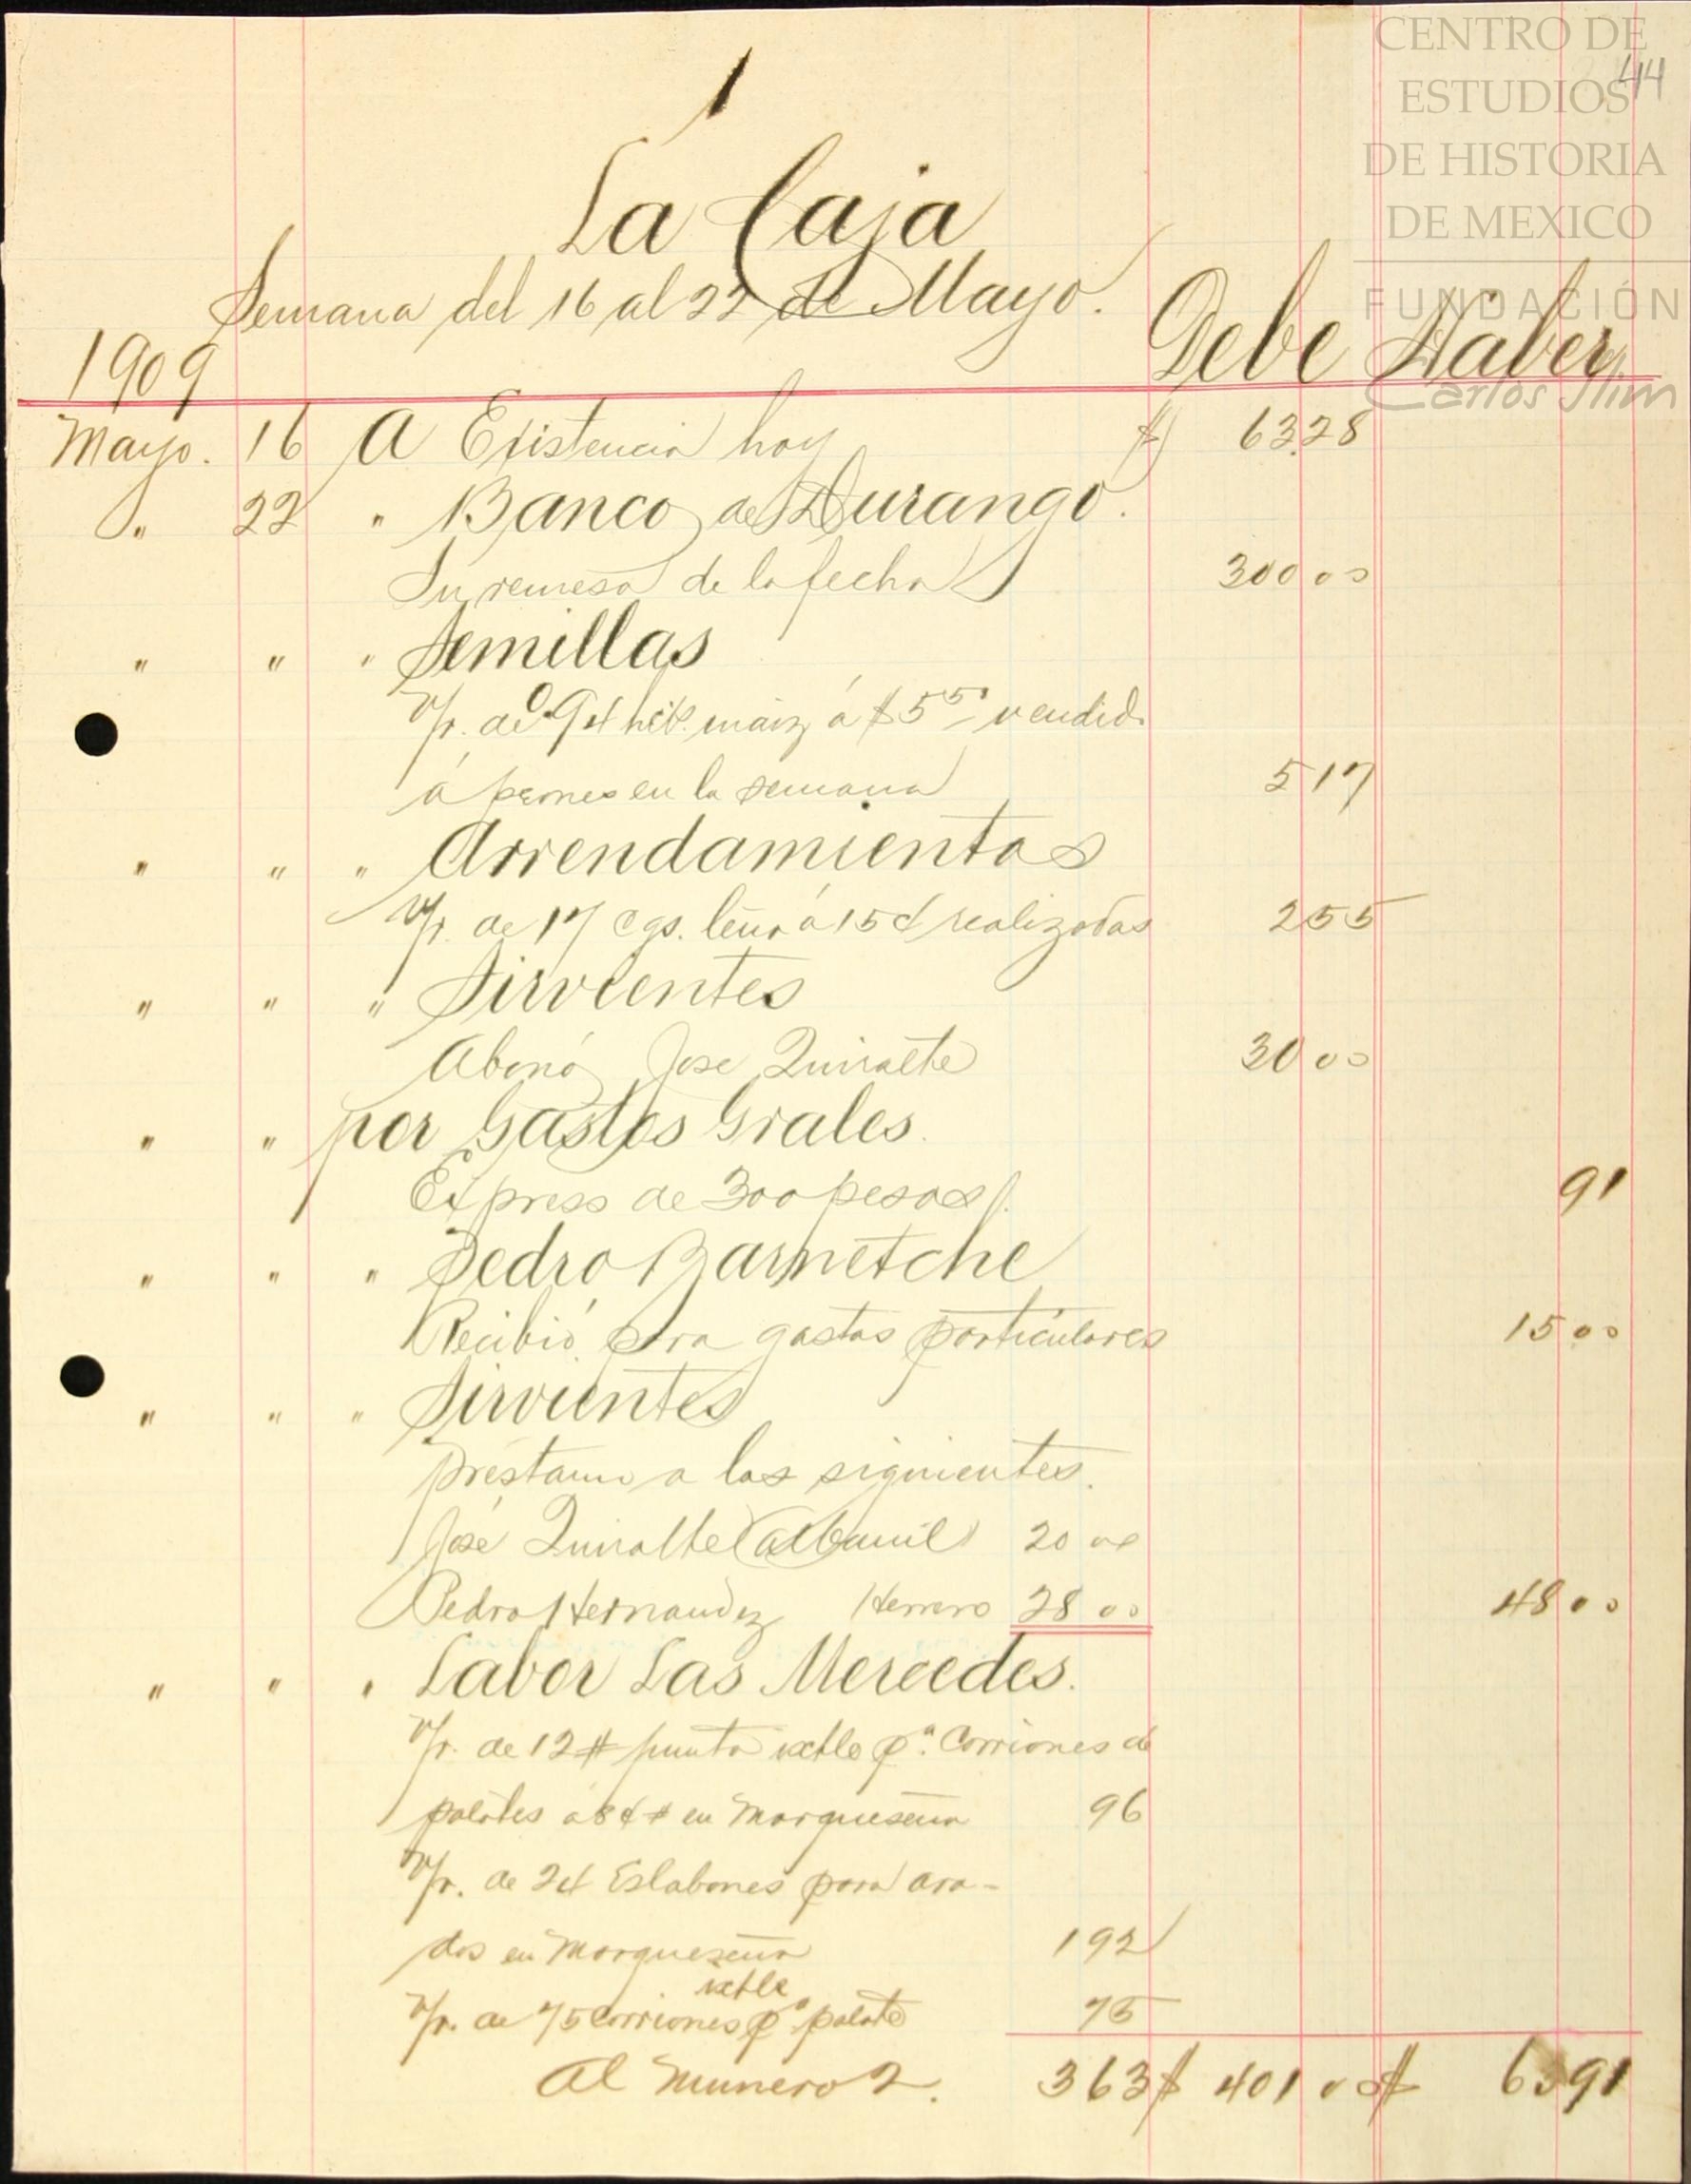 CENTRO DE
ESTUDIOS
DE HISTORIA
DE MEXICO
FUNDACIÓN
Carlos Slim
44
1
La Caja
Semana del 16 al 22 de Mayo.
1909 Debe Haber
Mayo. 16 A Existencia hoy $ 63.28
" 22 " Banco de Durango.
Su remesa de la fecha 300 00
" " " Semillas
V/r. de 0.94 hct. maiz á $5 50 vendid.
á peones en la semana 5 17
" " " Arrendamientos
V/r. de 17 cgs. leña á 15 ¢ realizadas 2 55
" " " Sirvientes
Abonó Jose Quiralte 30 00
" " por Gastos Grales.
Express de 300 pesos 91
" " " Pedro Barnetche
Recibió para gastos particulares 15 00
" " " Sirvientes
préstamo a los siguientes.
José Quiralte (albanil) 20 00
Pedro Hernandez Herrero 28 00 48 00
" " " Labor Las Mercedes.
V/r. de 12 # punta ixtle pa. Corriones de
palotes á 8 ¢ # en Marqueseña 96
V/r. de 24 Eslabones para ara-
dos en Marqueseña 1 92
V/r. de 75 corriones ixtle pa palote 75
Al numero 2. 3 63 $ 401 00 $ 63 91